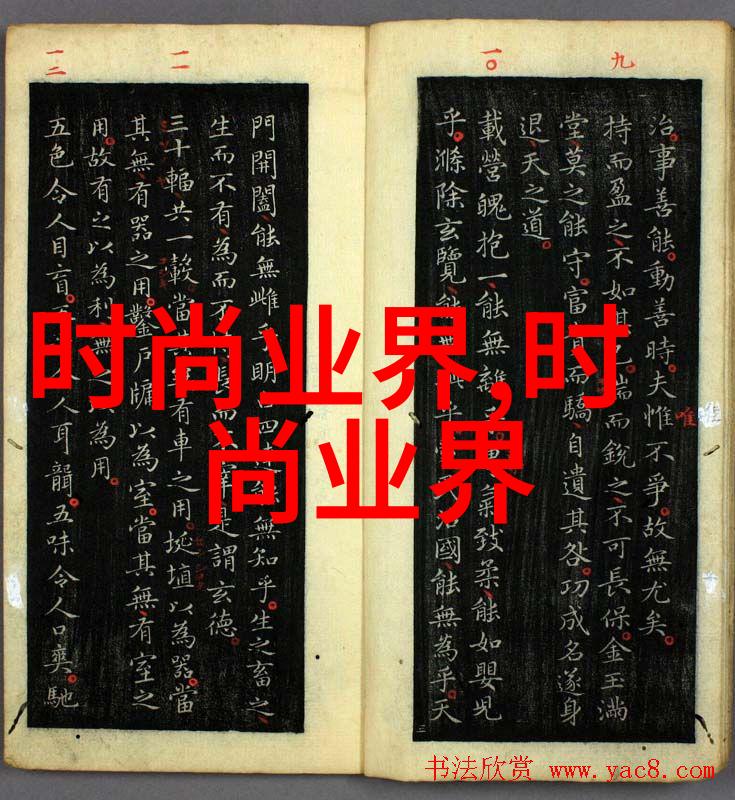 九
一〇
治事善能動善時夫惟不爭故無尤矣
唯
持而盈之不如其已揣而銳之不可長保金玉滿
堂莫之能守富貴而驕自遺其咎功成名遂身
退天之道
載營魄抱一能無離氣致柔能如嬰兒
乎滌除玄覽能無乎國能無為乎天
一一
一二
門開闔能無雌乎明四無知乎生之畜之
生而不有為而不長而宰是謂玄德
三十輻共一轂當有車之用埏埴以為器當
其無有器之用鑿戶牖以為室當其無有室之
用故有之以為利無之以為用
五色令人目盲人耳聾五味令人口爽馳
时尚业界,时
尚业界
书法欣赏 www.yac8.com